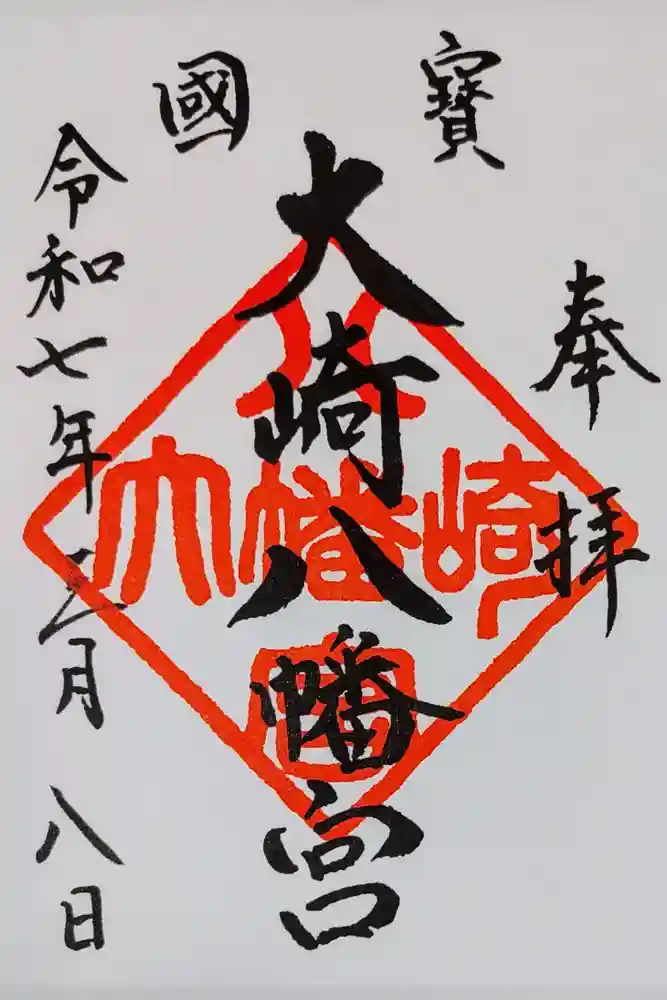 寶國
奉拝
大崎八幡宮
令和七年三月八日
八
大幡崎
宮